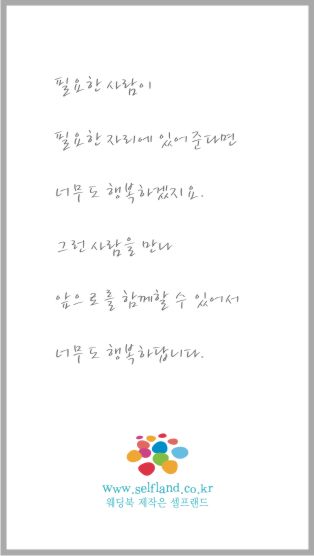 필요한 사람이
필요한 자리에 있어 준다면
너무도 행복하겠지요.
그런 사람을 만나
앞으로를 함께할 수 있어서
너무도 행복하답니다.
www.selfland.co.kr
웨딩북 제작은 셀프랜드